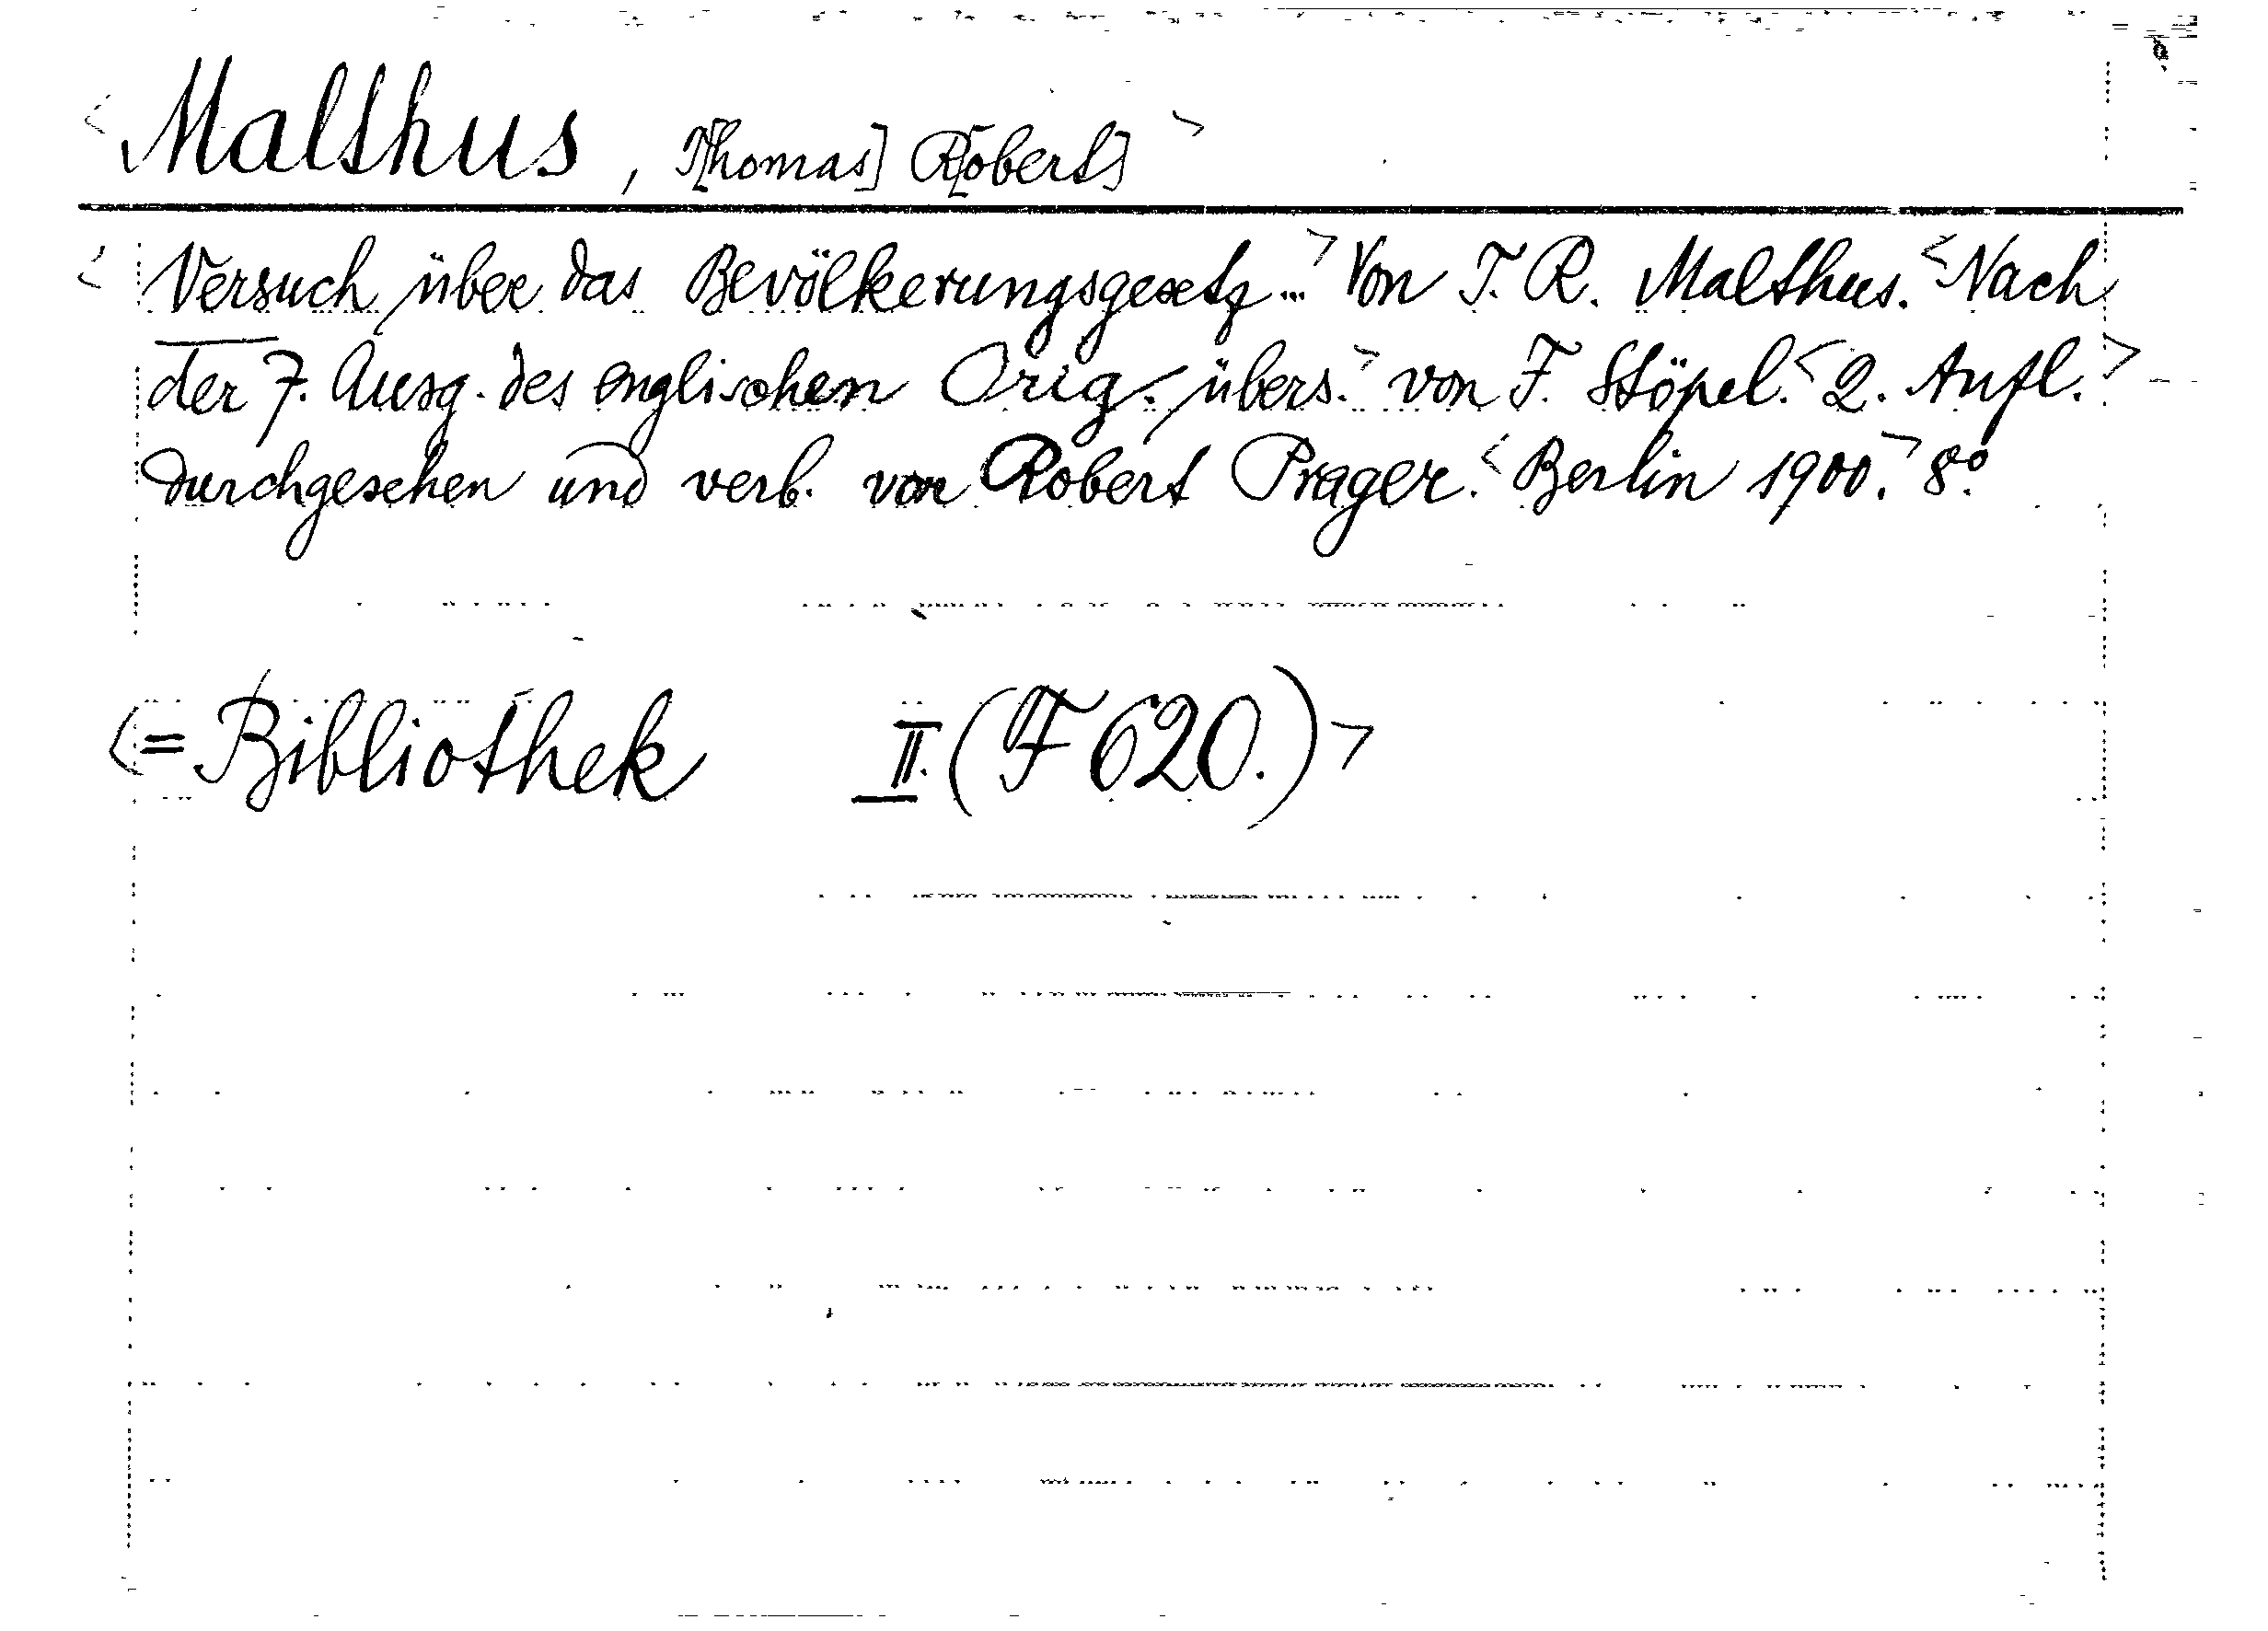 <Malthus, T[homas] R[obert]>
<Versuch über das Bevölkerungsgesetz...> Von T. R. Malthus. <Nach
der 7. Ausg. des englischen Orig. übers.> von F. Stöpel. <2. Aufl.>
durchgesehen und verb. von Robert Prager. <Berlin 1900.> 8°.
<= Bibliothek II. (F 620.)>